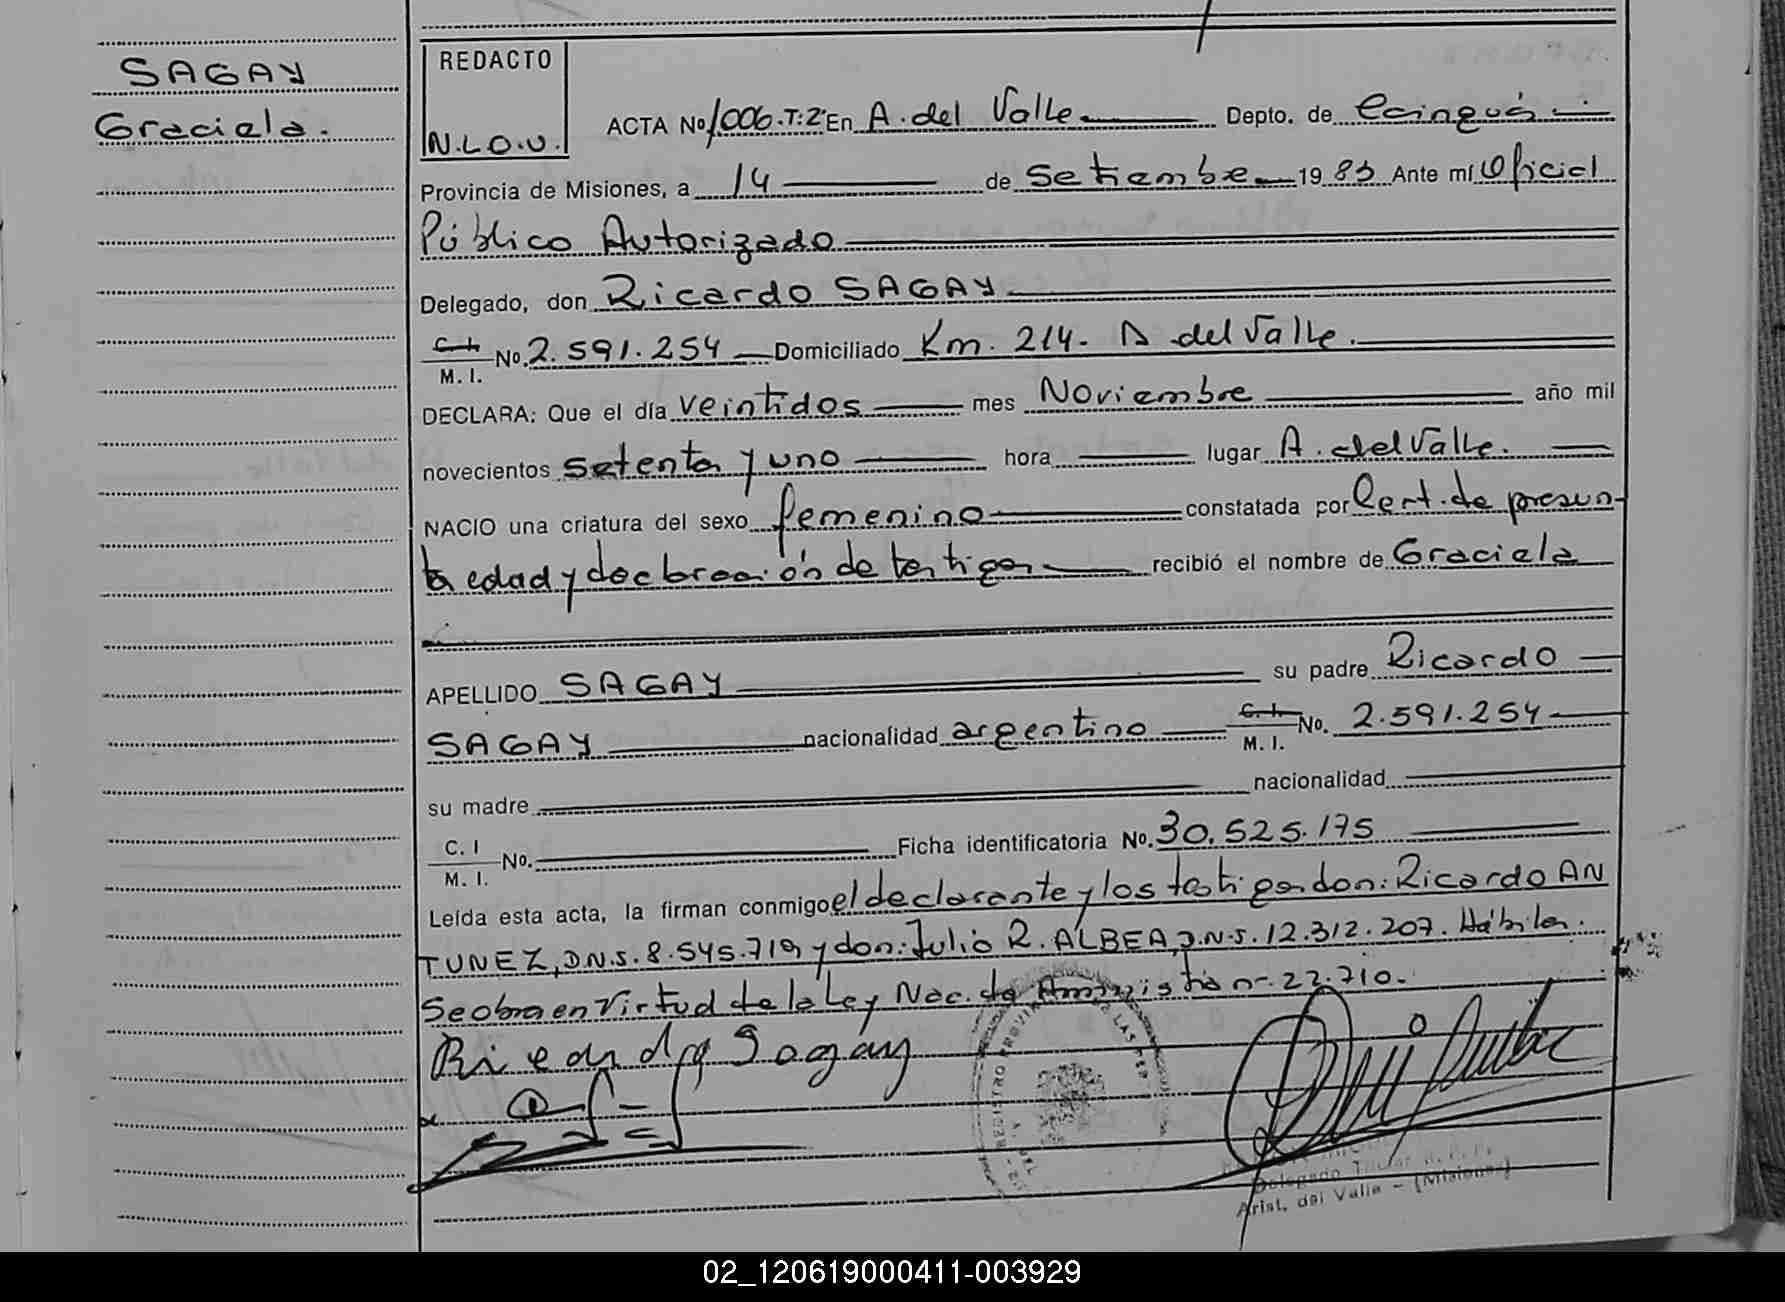 SAGAY
Graciela.
REDACTO
N.L.O.U.
ACTA No 1006.T:2º En A. del Valle Depto. de Cainguás
Provincia de Misiones, a 14 de Setiembre 1983 Ante mí Oficial
Público Autorizado
Delegado, don Ricardo SAGAY
C. I. M. I. No. 2.591.254 Domiciliado Km. 214. A del Valle.
DECLARA: Que el día veintidos mes Noviembre año mil
novecientos setenta y uno hora lugar A. del Valle.
NACIO una criatura del sexo femenino constatada por Cert. de presun-
ta edad y declaración de testigos recibió el nombre de Graciela
APELLIDO SAGAY su padre Ricardo
SAGAY nacionalidad argentino C. I. M. I. No. 2.591.254
su madre nacionalidad
C. I M. I. No. Ficha identificatoria No. 30.525.175
Leída esta acta, la firman conmigo el declarante y los testigos don: Ricardo AN
TUNEZ, D.N.I. 8.545.719 y don: Julio R. ALBEA, D.N.I. 12.312.207. Hábiles.
Se obra en Virtud de la Ley Nac. de Amnistia nº 22.710.
Ricardo Sagay
REGISTRO PROVI LAS PER
Delegado Titular R.P.P.
Arist. del Valle - (Misiones)
02_120619000411-003929